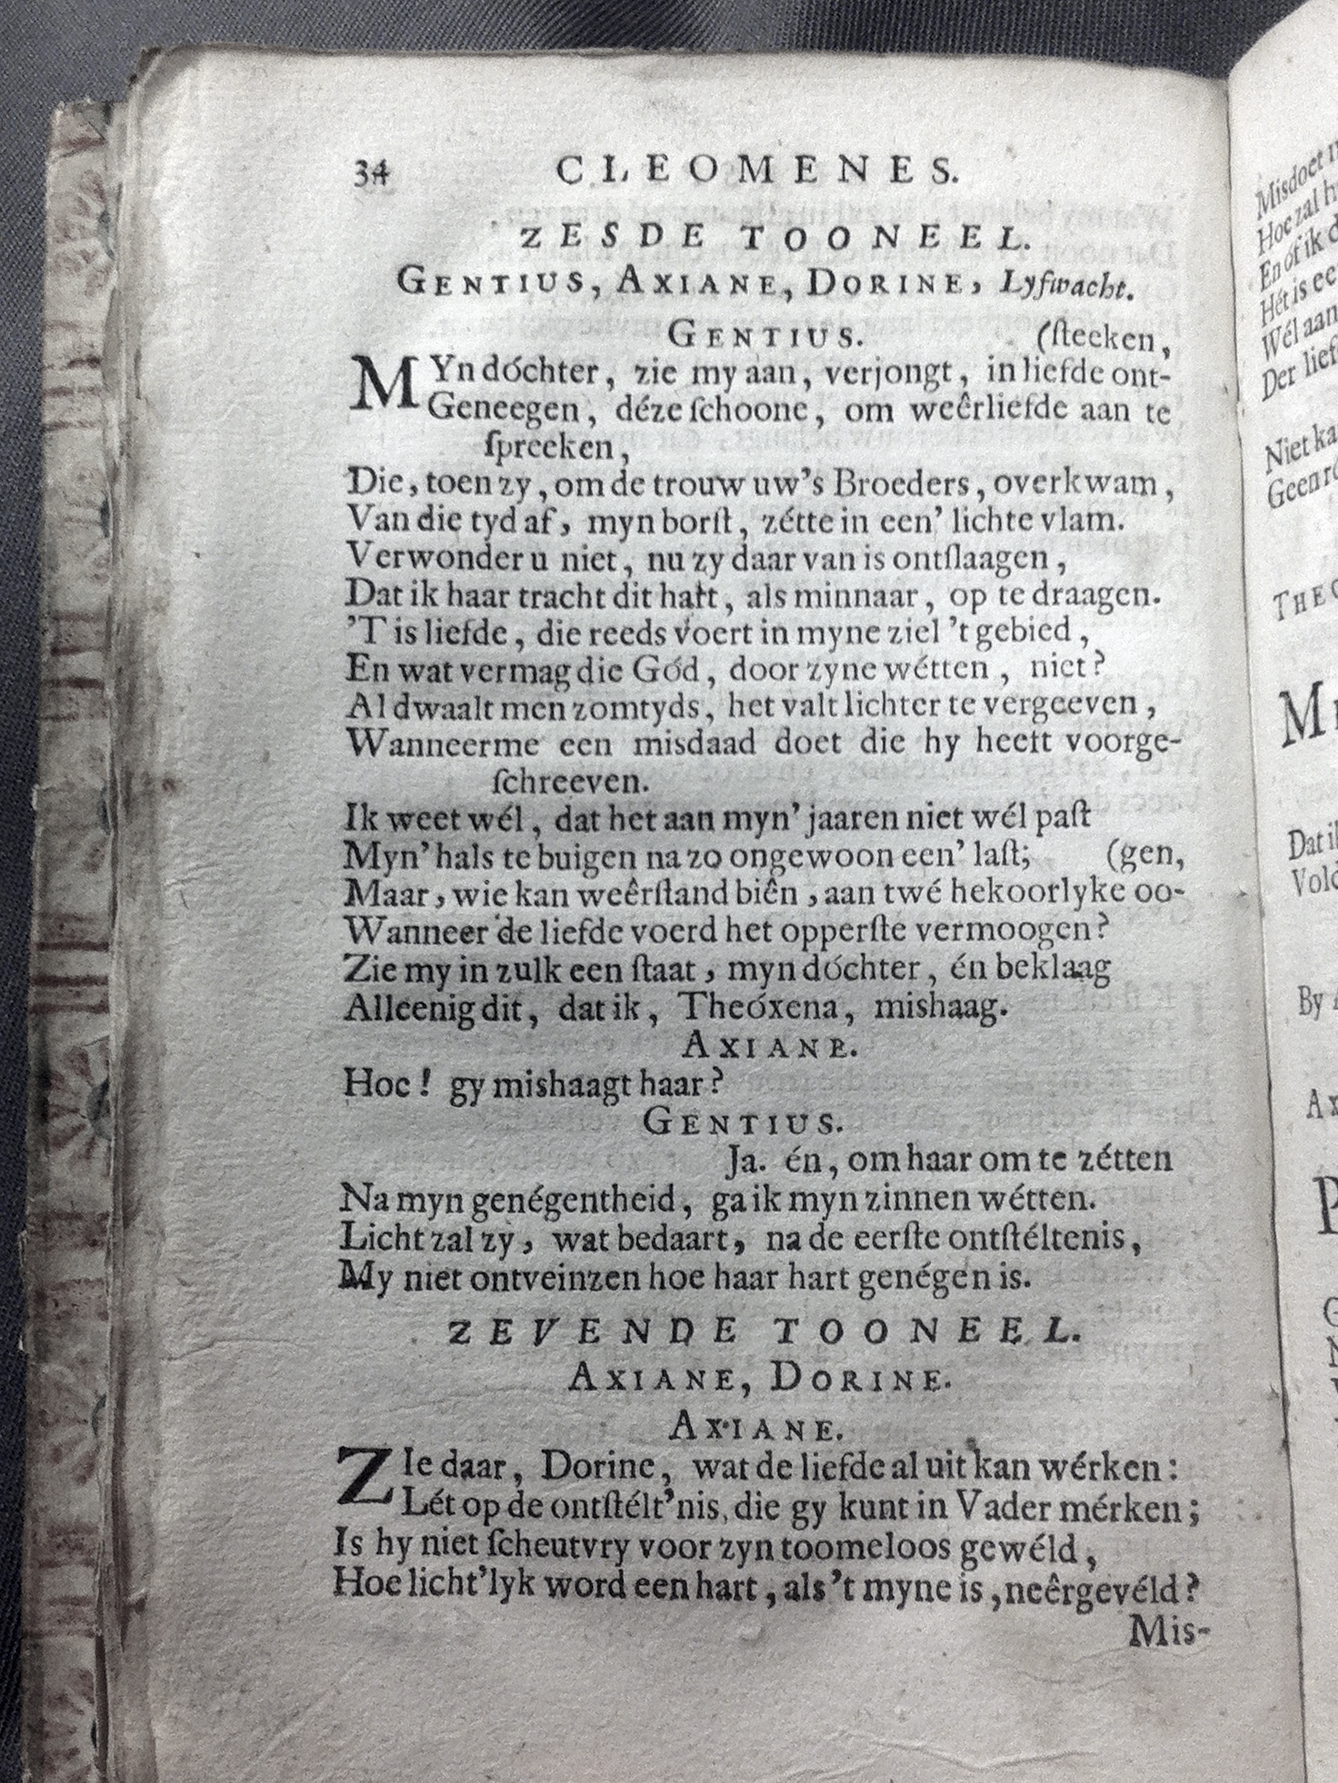 34 CLEOMENES.
ZESDE TOONEEL.
GENTIUS, AXIANE, DORINE, Lyfwacht.
GENTIUS. (ſteeken,
MYn dóchter, zie my aan, verjongt, in liefde ont-
Geneegen, déze ſchoone, om weêrliefde aan te
ſpreeken,
Die, toen zy, om de trouw uw's Broeders, overkwam,
Van die tyd af, myn borſt, zétte in een' lichte vlam.
Verwonder u niet, nu zy daar van is ontſlaagen,
Dat ik haar tracht dit hart, als minnaar, op te draagen.
'T is liefde, die reeds voert in myne ziel 't gebied,
En wat vermag die Gód, door zyne wétten, niet?
Al dwaalt men zomtyds, het valt lichter te vergeeven,
Wanneerme een misdaad doet die hy heeft voorge-
ſchreeven.
Ik weet wél, dat het aan myn' jaaren niet wél paſt
Myn' hals te buigen na zo ongewoon een' laſt; (gen,
Maar, wie kan weêrſtand biên, aan twé bekoorlyke oo-
Wanneer de liefde voerd het opperſte vermoogen?
Zie my in zulk een ſtaat, myn dóchter, én beklaag
Alleenig dit, dat ik, Theóxena, mishaag.
AXIANE.
Hoe! gy mishaagt haar?
GENTIUS.
Ja. én, om haar om te zétten
Na myn genégentheid, ga ik myn zinnen wétten.
Licht zal zy, wat bedaart, na de eerſte ontſtéltenis,
My niet ontveinzen hoe haar hart genégen is.
ZEVENDE TOONEEL.
AXIANE, DORINE.
AXIANE.
ZIe daar, Dorine, wat de liefde al uit kan wérken:
Lét op de ontſtélt'nis, die gy kunt in Vader mérken;
Is hy niet ſcheutvry voor zyn toomeloos gewéld,
Hoe licht'lyk word een hart, als 't myne is, neêrgevéld?
Mis-
Misdoet
Hoe zal
En óf ik
Hét is ee
Wél aan
Der lief
Niet ka
Geen
THEO
Dat ik
By